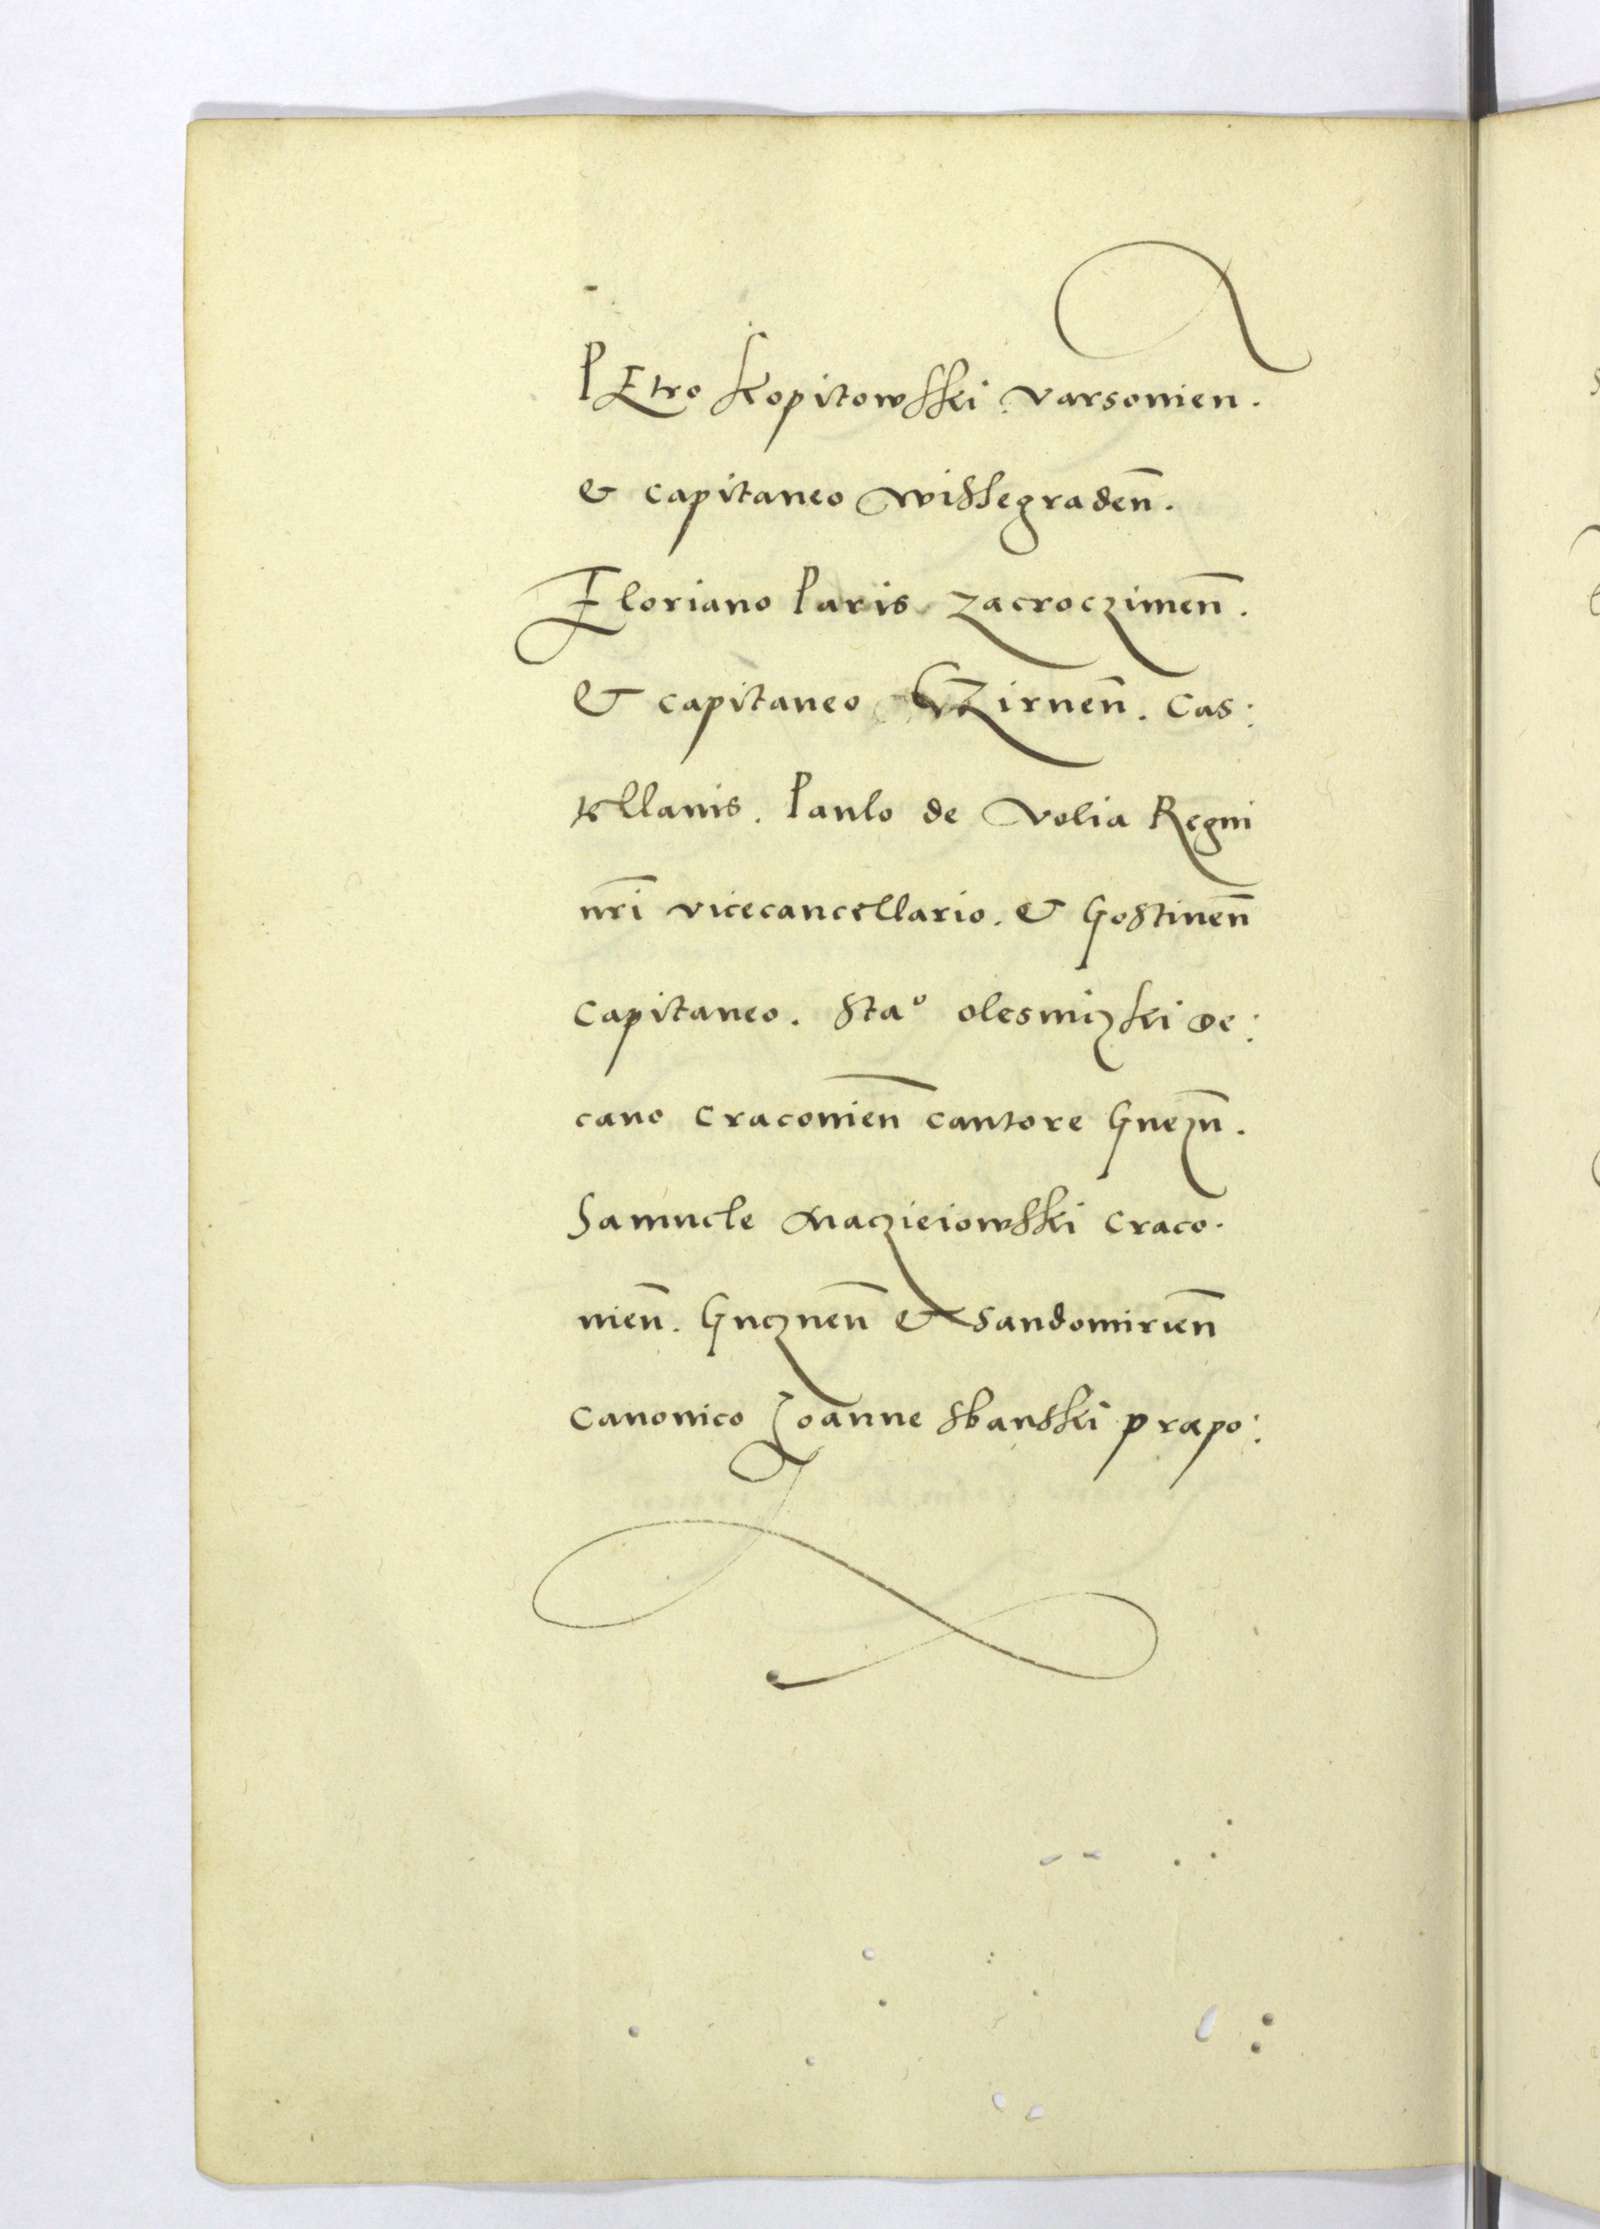 PEtro Kopitowski varsovien.
& capitaneo Wissegradeñ.
Floriano Paris zacroczimeñ.
& capitaneo Czirneñ. Cas:
tellanis. Paulo de Volia Regni
nr̃i vicecancellario. & Gostineñ
Capitaneo. Staº olesniczki De:
cano Cracovieñ cantore Gnezñ.
Samuele Macziejowski Craco.
vieñ. Gnezneñ & Sandomirieñ
Canonico Joanne Sbanski præpo: